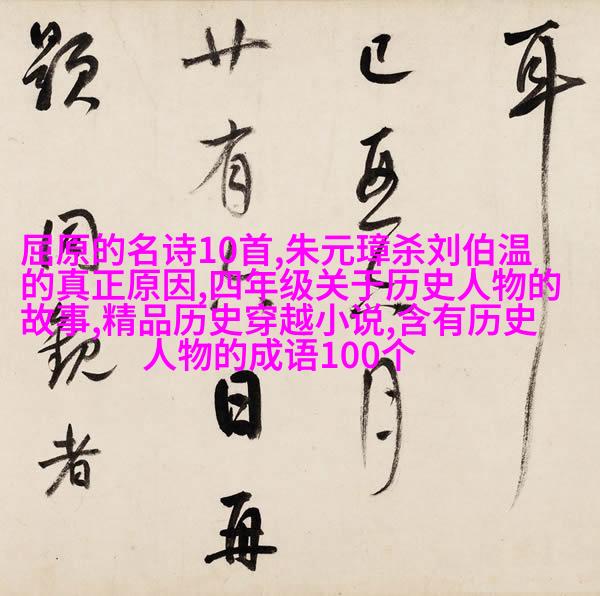 屈原的名诗10首,朱元璋杀刘伯温
的真正原因,四年级关于历史人物的
故事,精品历史穿越小说,含有历史
人物的成语100个
耳
已月
廿有日再
題同觀者